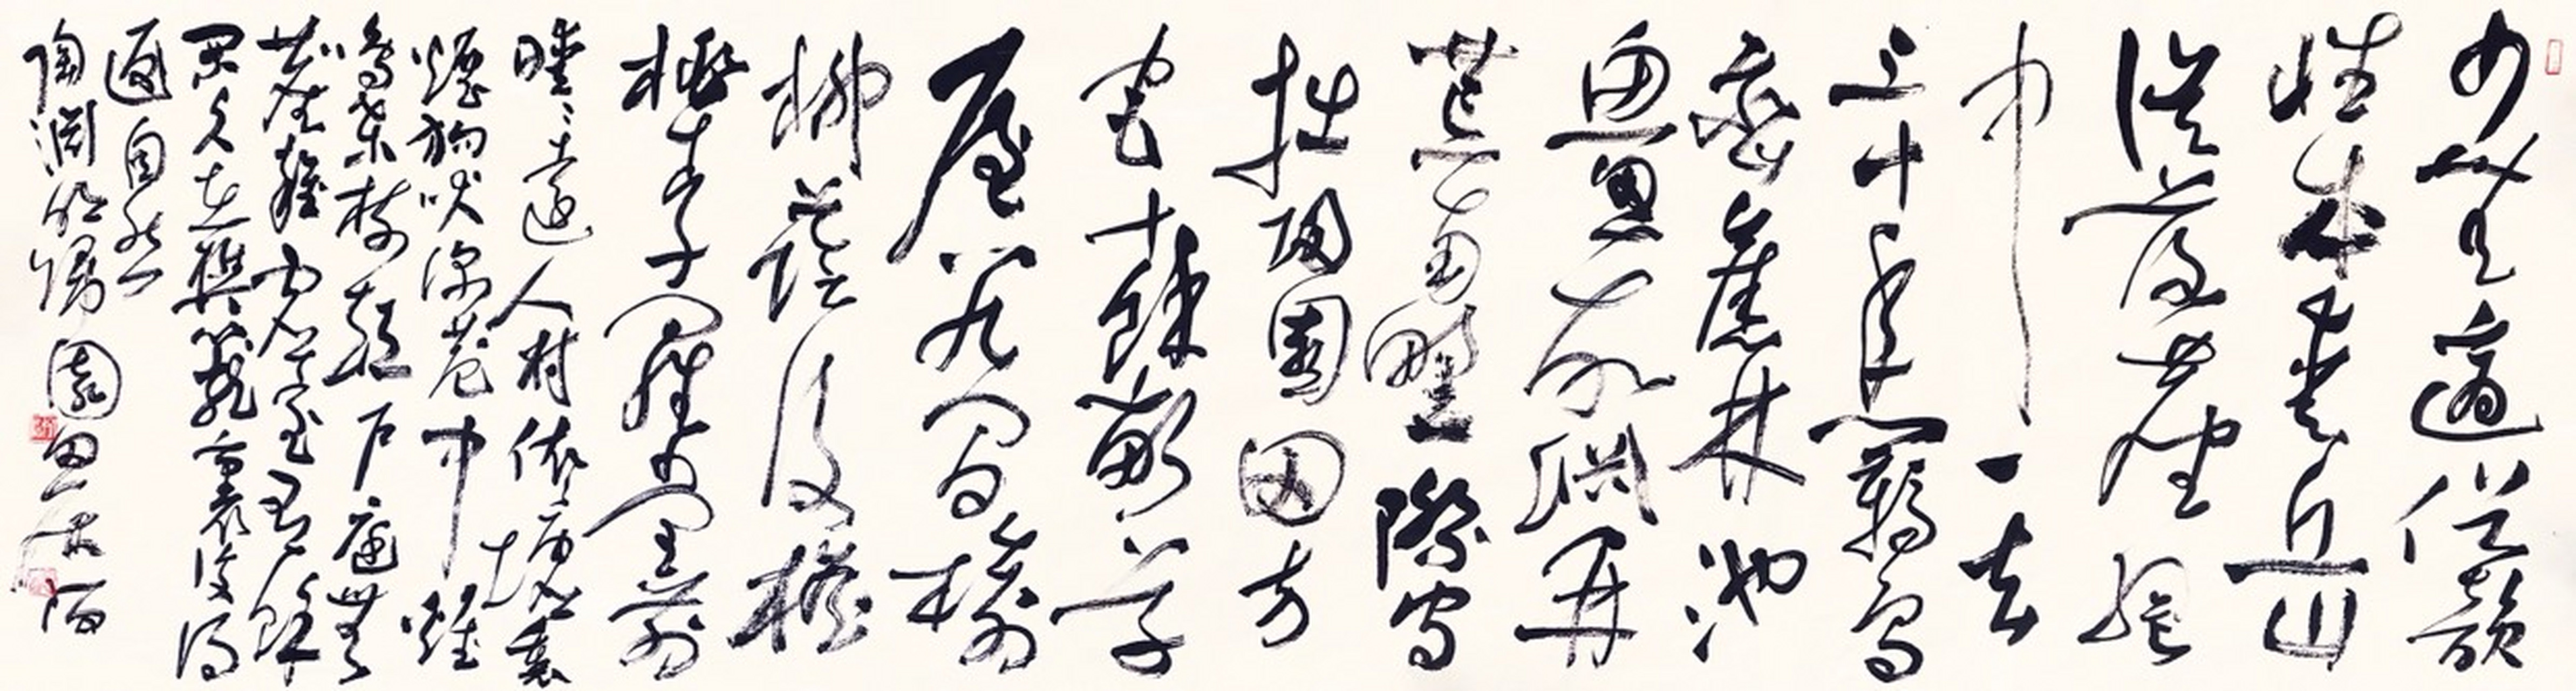 少無適俗韻
性本愛丘山
誤落塵網
中一去
三十年羈鳥
戀舊林池
魚思故淵開
荒南野際守
拙歸園田方
宅十餘畝草
屋八九間榆
柳蔭後檐
桃李羅堂前
曖曖遠人村依依墟里
煙狗吠深巷中雞
鳴桑樹顛戶庭無
塵雜虛室有餘
閑久在樊籠裏復得
返自然
陶淵明歸園田居